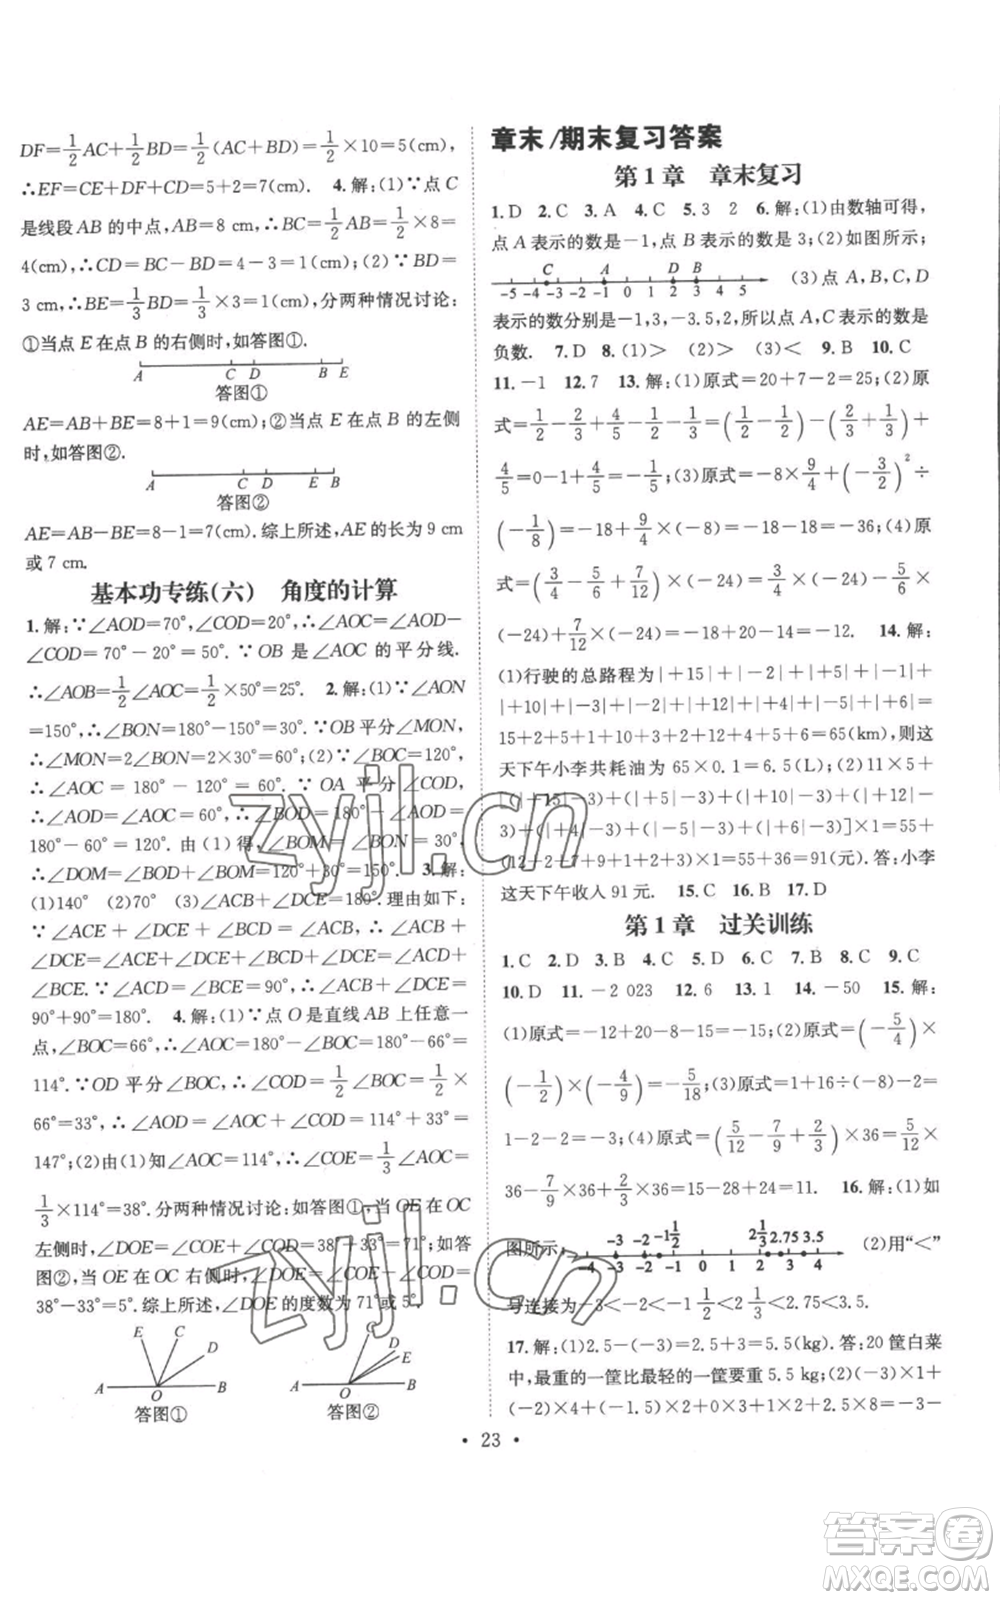 DF=1/2AC+1/2BD=1/2(AC+BD)=1/2×10=5(cm),
∴EF=CE+DF+CD=5+2=7(cm). 4.解:(1)∵点 C
是线段 AB 的中点,AB=8 cm,∴BC=1/2AB=1/2×8=
4(cm);∴CD=BC-BD=4-3=1(cm);(2)∵BD=
3 cm,∴BE=1/3BD=1/3×3=1(cm),分两种情况讨论:
①当点 E 在点 B 的右侧时,如答图①.
A C D B E
答图①
AE=AB+BE=8+1=9(cm);②当点 E 在点 B 的左侧
时,如答图②.
A C D E B
答图②
AE=AB-BE=8-1=7(cm).综上所述,AE 的长为 9 cm
或 7 cm.
基本功专练(六) 角度的计算
1.解:∵∠AOD=70°,∠COD=20°,∴∠AOC=∠AOD-
∠COD=70°-20°=50°.∵OB 是∠AOC 的平分线.
∴∠AOB=1/2∠AOC=1/2×50°=25°. 2.解:(1)∵∠AON
=150°,∴∠BON=180°-150°=30°.∵OB 平分∠MON,
∴∠MON=2∠BON=2×30°=60°;(2)∵∠BOC=120°,
∴∠AOC=180°-120°=60°.∵OA 平分∠COD,
∴∠AOD=∠AOC=60°,∴∠BOD=180°-∠AOD=
180°-60°=120°.由(1)得,∠BOM=∠BON=30°,
∴∠DOM=∠BOD+∠BOM=120°+30°=150°. 3.解:
(1)140° (2)∠ACB+∠DCE=180°.理由如下:
∵∠ACE+∠DCE+∠BCD=∠ACB,∴∠ACB+
∠DCE=∠ACE+∠DCE+∠BCD+∠DCE=∠ACD+
∠BCE.∵∠ACD=∠BCE=90°,∴∠ACB+∠DCE=
90°+90°=180°. 4.解:(1)∵点 O 是直线 AB 上任意一
点,∠BOC=66°,∴∠AOC=180°-∠BOC=180°-66°=
114°.∵OD 平分∠BOC,∴∠COD=1/2∠BOC=1/2×
66°=33°,∴∠AOD=∠AOC+∠COD=114°+33°=
147°;(2)由(1)知∠AOC=114°,∴∠COE=1/3∠AOC=
1/3×114°=38°.分两种情况讨论:如答图①,当 OE 在 OC
左侧时,∠DOE=∠COE+∠COD=38°+33°=71°;如答
图②,当 OE 在 OC 右侧时,∠DOE=∠COE-∠COD=
38°-33°=5°.综上所述,∠DOE 的度数为 71°或 5°.
E C D A O B
答图①
C D E A O B
答图②
章末/期末复习答案
第 1 章 章末复习
1.D 2.C 3.A 4.C 5.3 2 6.解:(1)由数轴可得,
点 A 表示的数是-1,点 B 表示的数是 3;(2)如图所示;
C A D B
-5 -4 -3 -2 -1 0 1 2 3 4 5
(3)点 A,B,C,D
表示的数分别是-1,3,-3.5,2,所以点 A,C 表示的数是
负数. 7.D 8.(1)> (2)> (3)< 9.B 10.C
11.-1 12.7 13.解:(1)原式=20+7-2=25;(2)原
式=1/2-2/3+4/5-1/2-1/3=(1/2-1/2)-(2/3+1/3)+
4/5=0-1+4/5=-1/5;(3)原式=-8×9/4+(-3/2)²÷
(-1/8)=-18+9/4×(-8)=-18-18=-36;(4)原
式=(3/4-5/6+7/12)×(-24)=3/4×(-24)-5/6×
(-24)+7/12×(-24)=-18+20-14=-12. 14.解:
(1)行驶的总路程为|+15|+|-2|+|+5|+|-1|+
|+10|+|-3|+|-2|+|+12|+|+4|+|-5|+|+6|=
15+2+5+1+10+3+2+12+4+5+6=65(km),则这
天下午小李共耗油为 65×0.1=6.5(L);(2)11×5+
(|-3)+(|+5|-3)+(|+10|-
3)+(|+4|-3)+(|-5|-3)+(|+6|-3)]×1=55+
(12+2+7+9+1+2+3)×1=55+36=91(元).答:小李
这天下午收入 91 元. 15.C 16.B 17.D
第 1 章 过关训练
1.C 2.D 3.B 4.C 5.C 6.D 7.B 8.C 9.C
10.D 11.-2 023 12.6 13.1 14.-50 15.解:
(1)原式=-12+20-8-15=-15;(2)原式=(-5/4)×
(-1/2)×(-4/9)=-5/18;(3)原式=1+16÷(-8)-2=
1-2-2=-3;(4)原式=(5/12-7/9+2/3)×36=5/12×
36-7/9×36+2/3×36=15-28+24=11. 16.解:(1)如
图所示:
-3 -2 -1 1/2 2 1/3 2.75 3.5
-4 -3 -2 -1 0 1 2 3 4
(2)用“<”
号连接为-3<-2<-1 1/2<2 1/3<2.75<3.5.
17.解:(1)2.5-(-3)=2.5+3=5.5(kg).答:20 筐白菜
中,最重的一筐比最轻的一筐要重 5.5 kg;(2)(-3)×1+
(-2)×4+(-1.5)×2+0×3+1×2+2.5×8=-3-8-
• 23 •
zyjl.cn
zyjl.cn
答案圈
MXQE.COM